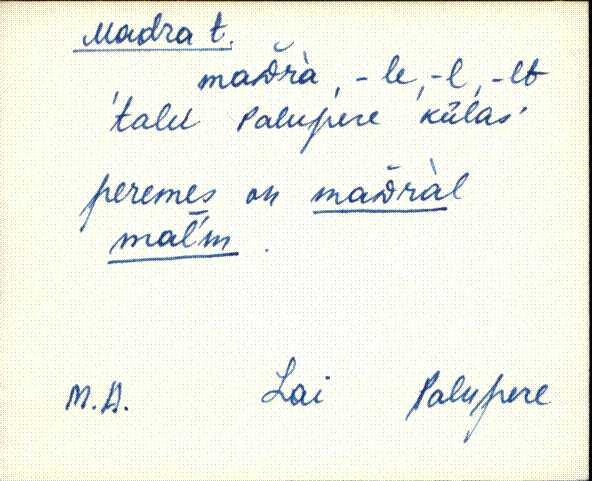 Madra t.
maD̆rà, -le, -l, -lt
'talu Palupere külas'
peremes on maD̆ràl
mal̄'m.
M.A. Lai Palupere